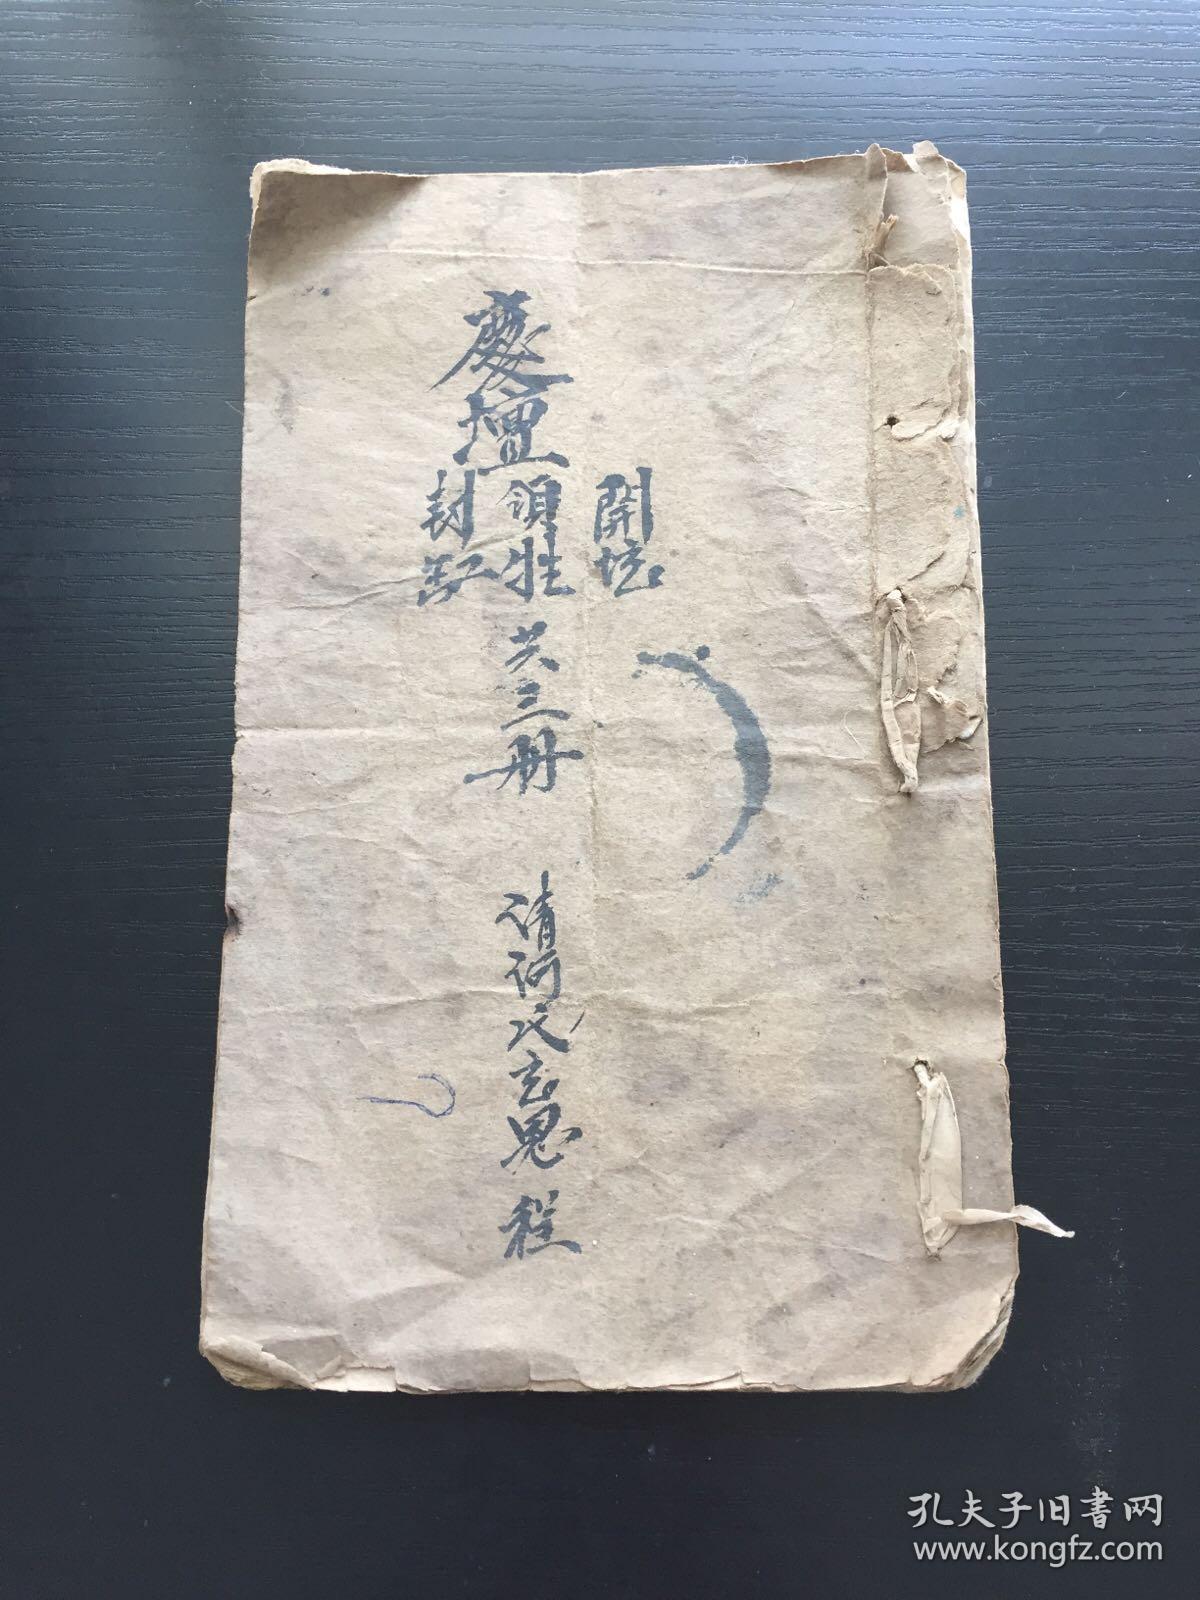 慶壇
開坛
領牲
封缸
共三册
清河氏玄恩 程
孔夫子旧書网
www.kongfz.com